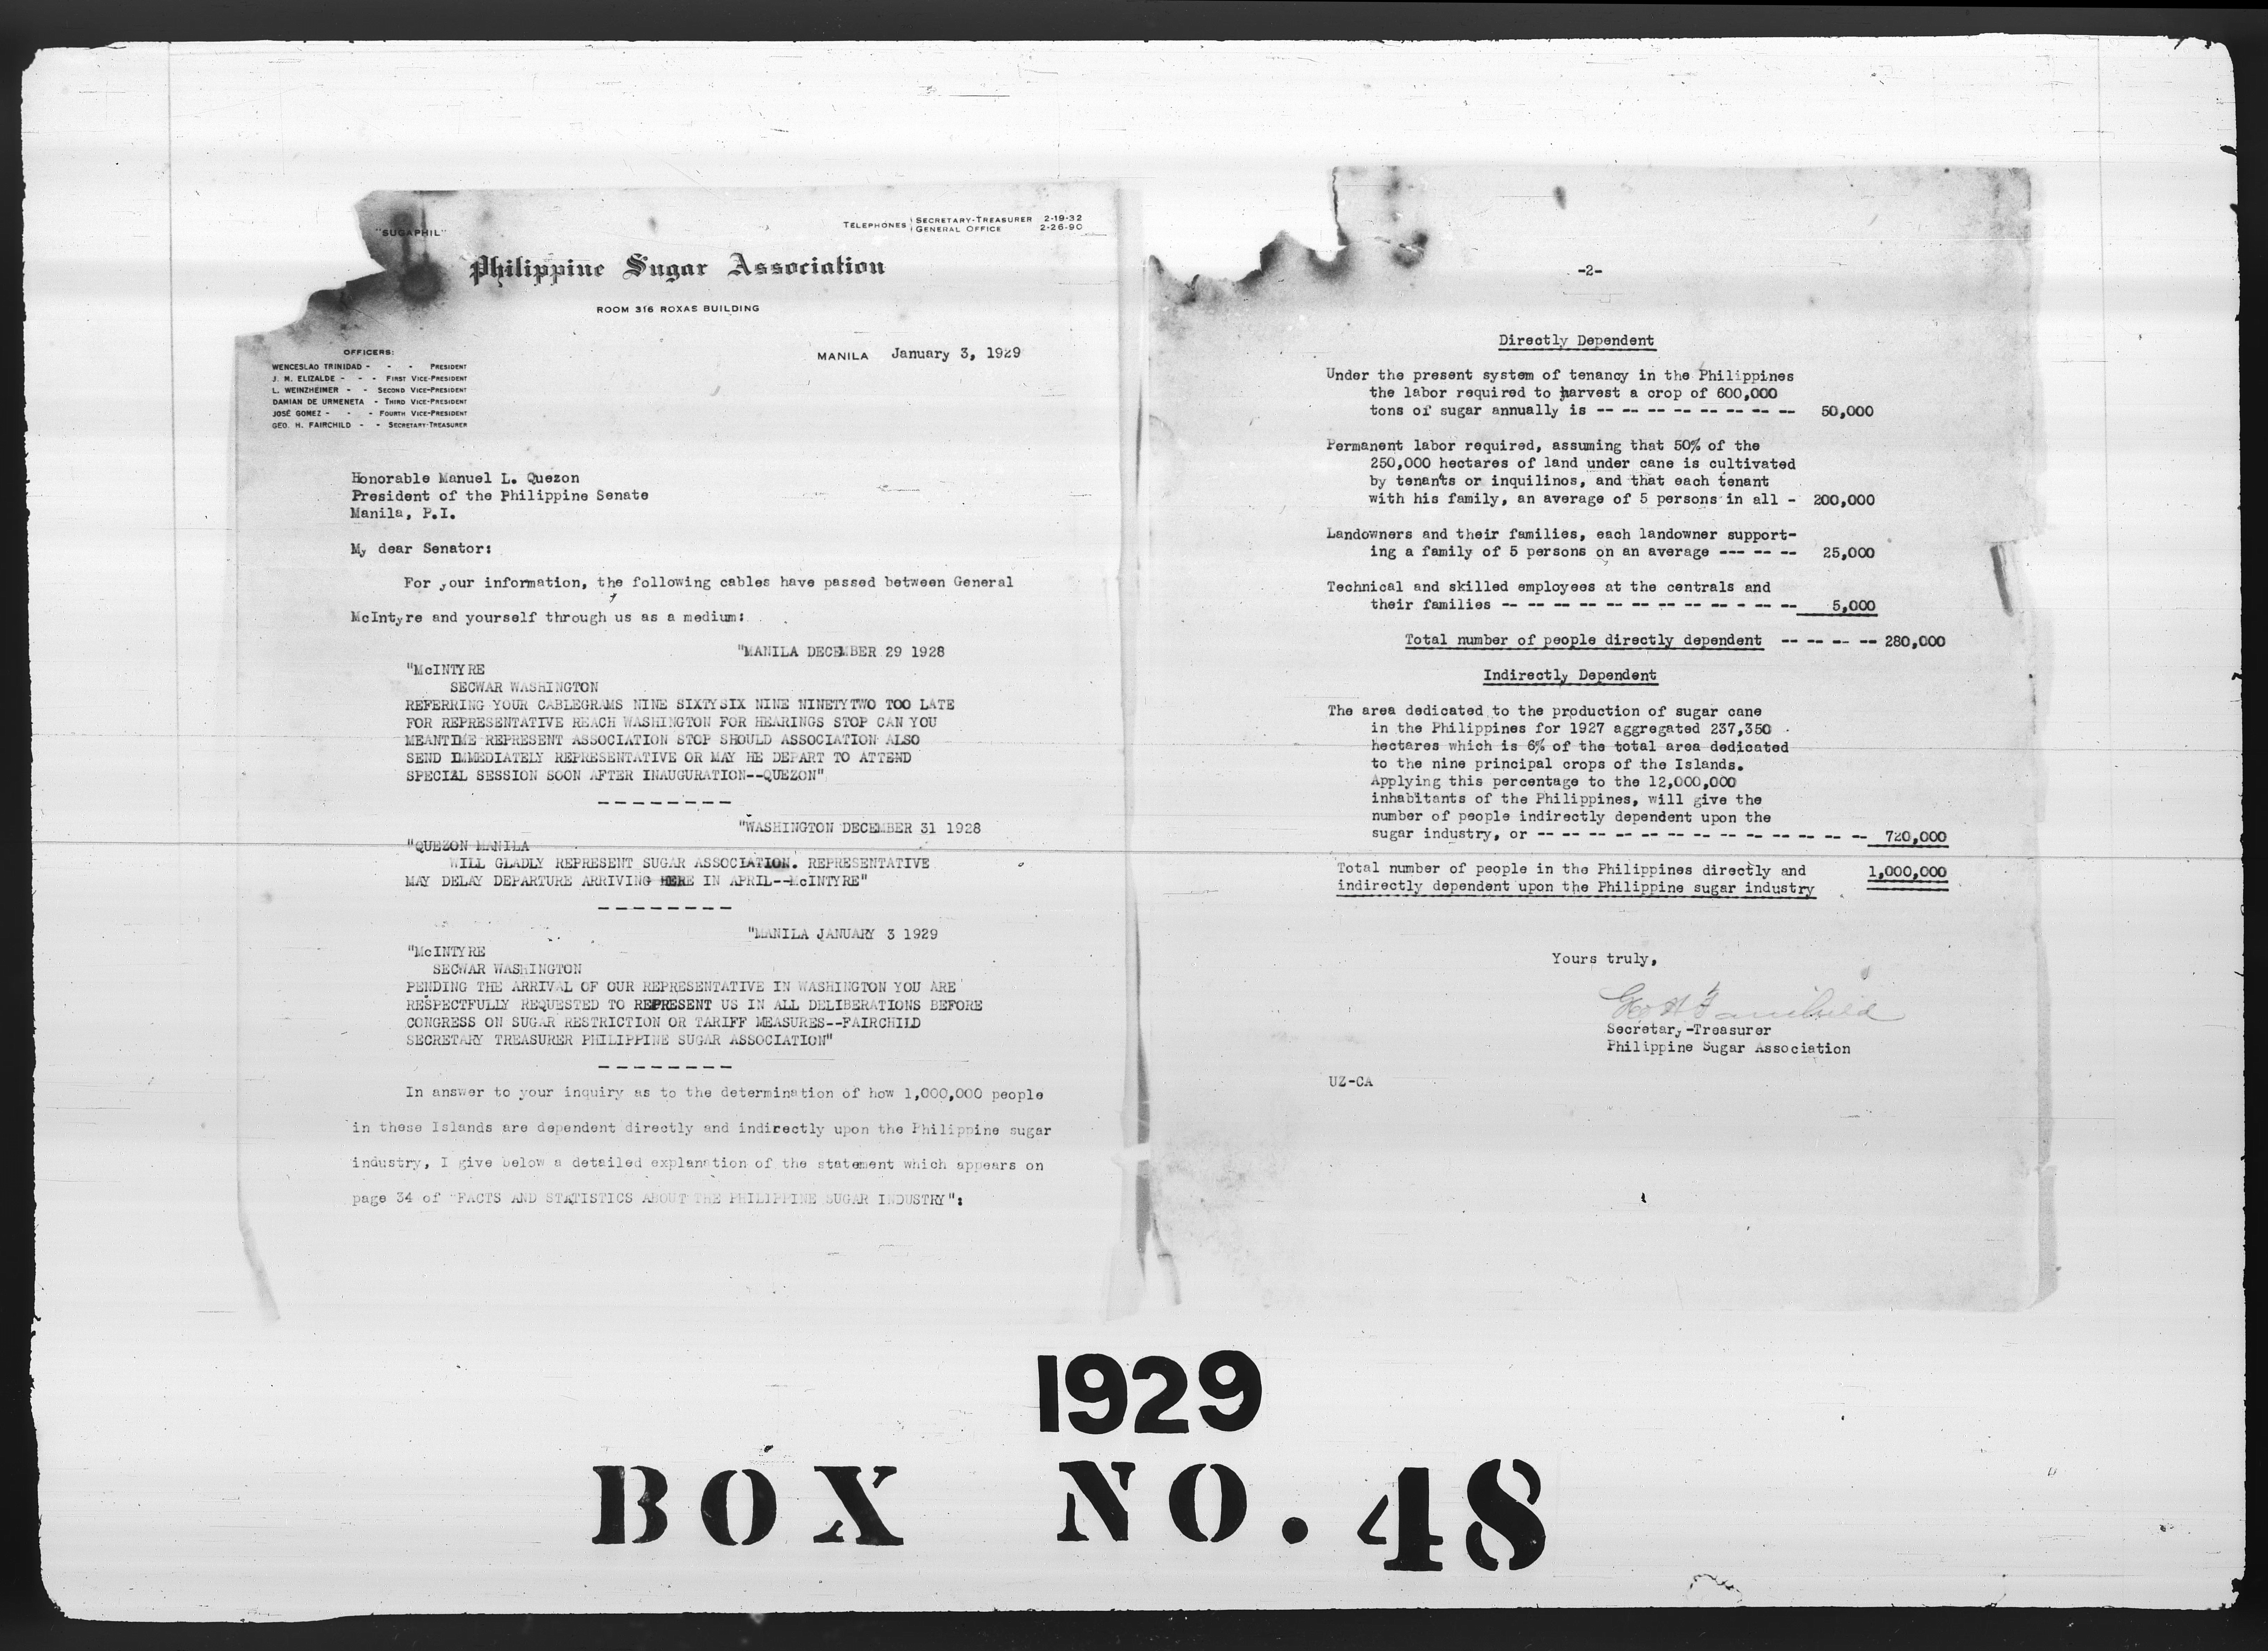 "SUGAPHIL"
TELEPHONES SECRETARY-TREASURER 2-19-32
GENERAL OFFICE 2-26-90
Philippine Sugar Association
ROOM 316 ROXAS BUILDING
MANILA January 3, 1929
OFFICERS:
WENCESLAO TRINIDAD - - - PRESIDENT
J. M. ELIZALDE - - - FIRST VICE-PRESIDENT
L. WEINZHEIMER - - SECOND VICE-PRESIDENT
DAMIAN DE URMENETA - THIRD VICE-PRESIDENT
JOSÉ GOMEZ - - - FOURTH VICE-PRESIDENT
GEO. H. FAIRCHILD - - SECRETARY-TREASURER
Honorable Manuel L. Quezon
President of the Philippine Senate
Manila, P.I.
My dear Senator:
For your information, the following cables have passed between General
McIntyre and yourself through us as a medium:
"MANILA DECEMBER 29 1928
"McINTYRE
SECWAR WASHINGTON
REFERRING YOUR CABLEGRAMS NINE SIXTYSIX NINE NINETYTWO TOO LATE
FOR REPRESENTATIVE REACH WASHINGTON FOR HEARINGS STOP CAN YOU
MEANTIME REPRESENT ASSOCIATION STOP SHOULD ASSOCIATION ALSO
SEND IMMEDIATELY REPRESENTATIVE OR MAY HE DEPART TO ATTEND
SPECIAL SESSION SOON AFTER INAUGURATION--QUEZON"
--------
"WASHINGTON DECEMBER 31 1928
"QUEZON MANILA
WILL GLADLY REPRESENT SUGAR ASSOCIATION. REPRESENTATIVE
MAY DELAY DEPARTURE ARRIVING HERE IN APRIL--McINTYRE"
--------
"MANILA JANUARY 3 1929
"McINTYRE
SECWAR WASHINGTON
PENDING THE ARRIVAL OF OUR REPRESENTATIVE IN WASHINGTON YOU ARE
RESPECTFULLY REQUESTED TO REPRESENT US IN ALL DELIBERATIONS BEFORE
CONGRESS ON SUGAR RESTRICTION OR TARIFF MEASURES--FAIRCHILD
SECRETARY TREASURER PHILIPPINE SUGAR ASSOCIATION"
--------
In answer to your inquiry as to the determination of how 1,000,000 people
in these Islands are dependent directly and indirectly upon the Philippine sugar
industry, I give below a detailed explanation of the statement which appears on
page 34 of "FACTS AND STATISTICS ABOUT THE PHILIPPINE SUGAR INDUSTRY":
-2-
Directly Dependent
Under the present system of tenancy in the Philippines
the labor required to harvest a crop of 600,000
tons of sugar annually is -- -- -- -- -- -- -- -- 50,000
Permanent labor required, assuming that 50% of the
250,000 hectares of land under cane is cultivated
by tenants or inquilinos, and that each tenant
with his family, an average of 5 persons in all - 200,000
Landowners and their families, each landowner support-
ing a family of 5 persons on an average --- -- -- 25,000
Technical and skilled employees at the centrals and
their families -- -- -- -- -- -- -- -- -- - -- -- 5,000
Total number of people directly dependent -- -- -- -- 280,000
Indirectly Dependent
The area dedicated to the production of sugar cane
in the Philippines for 1927 aggregated 237,350
hectares which is 6% of the total area dedicated
to the nine principal crops of the Islands.
Applying this percentage to the 12,000,000
inhabitants of the Philippines, will give the
number of people indirectly dependent upon the
sugar industry, or -- -- -- -- -- -- -- -- -- -- -- -- -- 720,000
Total number of people in the Philippines directly and 1,000,000
indirectly dependent upon the Philippine sugar industry
Yours truly,
Geo H Fairchild
Secretary-Treasurer
Philippine Sugar Association
UZ-CA
1929
BOX NO. 48